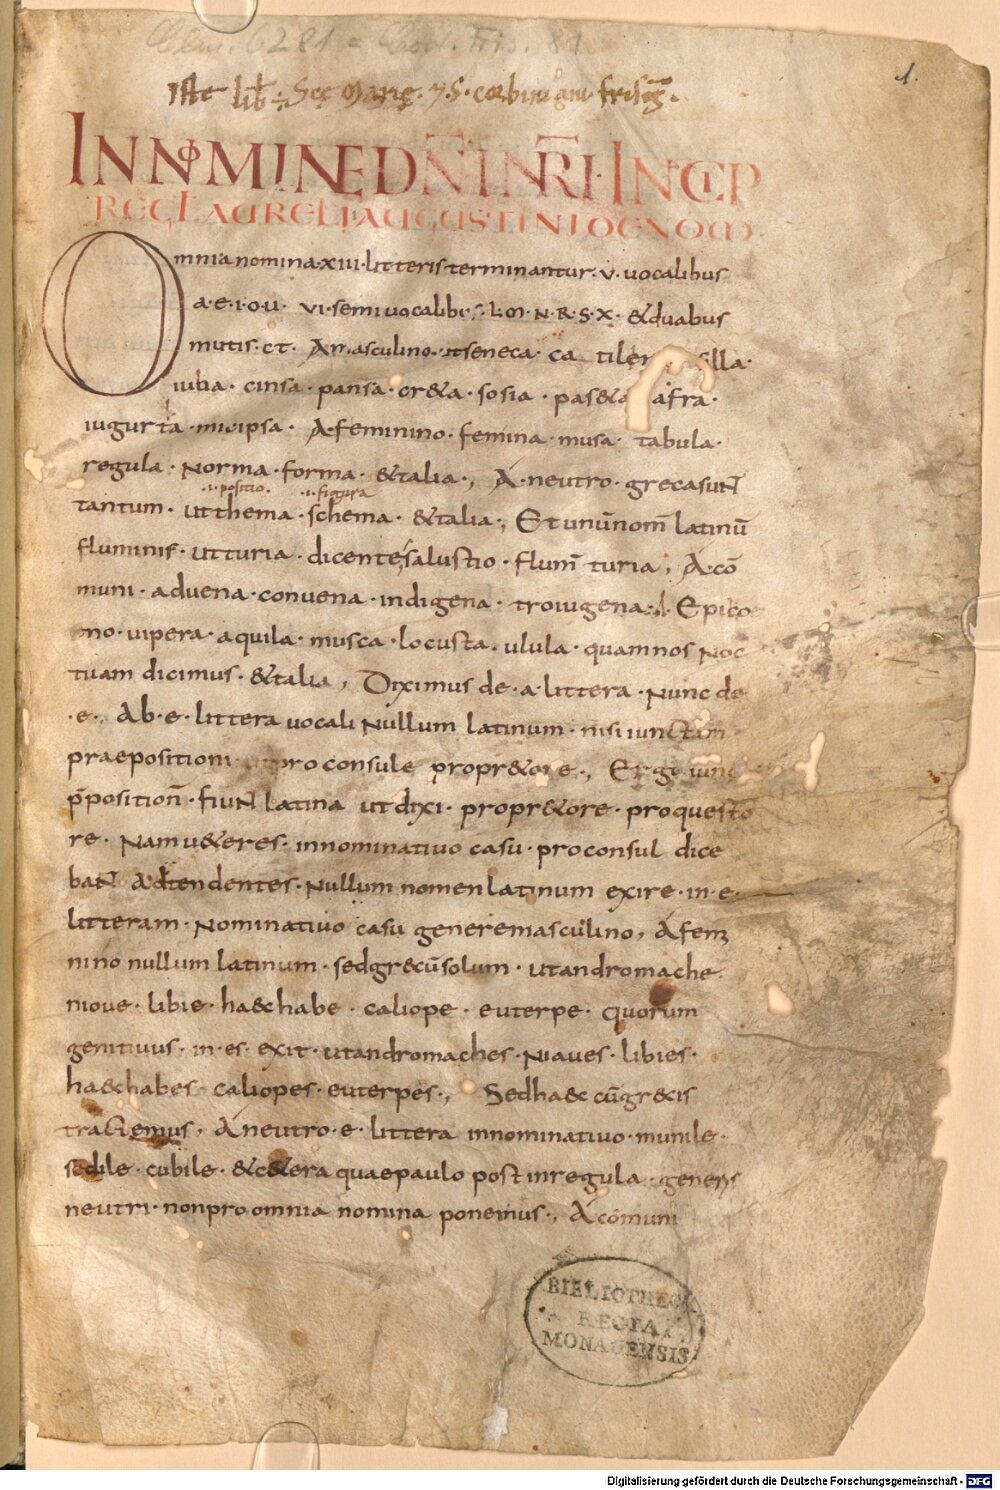 Clm. 6281 = Cod. Fris. 81
1.
Iste lib̄ ÷ Sce Marie ⁊ S. corbiniani frisĝ.
IN NOMINE D̄N̄I N̄R̄I. INCIP
REGL AURELI AUGUSTINI DE NOM
Omnia nomina·xiii·litteris terminantur·v·uocalibus
a·e·i·o·u· vi·semiuocalib; L·M·N·R·S·X· &duabus
mutis·c·t· A masculino· ut seneca· ca tiler silla·
iuba· cinsa· pansa· cr&a· sosia· pas&a afra·
iugurta· micipsa· A·feminino· femina· musa· tabula·
regula· norma· forma· &talia·, A·neutro· grecasuNT
.i. positio. .i. figura
tantum· utthema· schema· &talia·; Et unūnom̄ latinū
fluminis· utturia· dicente salustio· flum̄ turia; A·cō
muni· aduena· conuena· indigena· troiugena·; Epico
no· uipera· aquila· musca· locusta· ulula· quamnos noc
tuam dicimus· &talia, Diximus de·a·littera· Nunc de
·e·, Ab·e·littera uocali Nullum latinum· nisi iunctam
praepositioni ut pro consule propr&ore·, Ergo iunc
p̄position̄· fiuNT latina ut dixi· propr&ore· proquesto
re· Namu&eres· innominatiuo casu· proconsul dice
baNT Adtendentes· Nullum nomen latinum exire·in·e·
litteram· Nominatiuo casu generemasculino, A femi
nino nullum latinum· sedgr&cūsolum· utandromache·
niove· libie· ha&chabe· caliope· euterpe· quorum
genitiuus· in·es· exit· utandromaches· Niaues· libies·
ha&chabes· caliopes· euterpes·, Sedha&c cūgr&cis
tractemus, A neutro·e·littera innominatiuo· munile·
sedile· cubile· &c&era quaepaulo post inregula· generis
neutri· nonproomnia nomina ponemus·, A cōmuni
BIBLIOTHEC
A REGIA
MONACENSIS
Digitalisierung gefördert durch die Deutsche Forschungsgemeinschaft - DFG